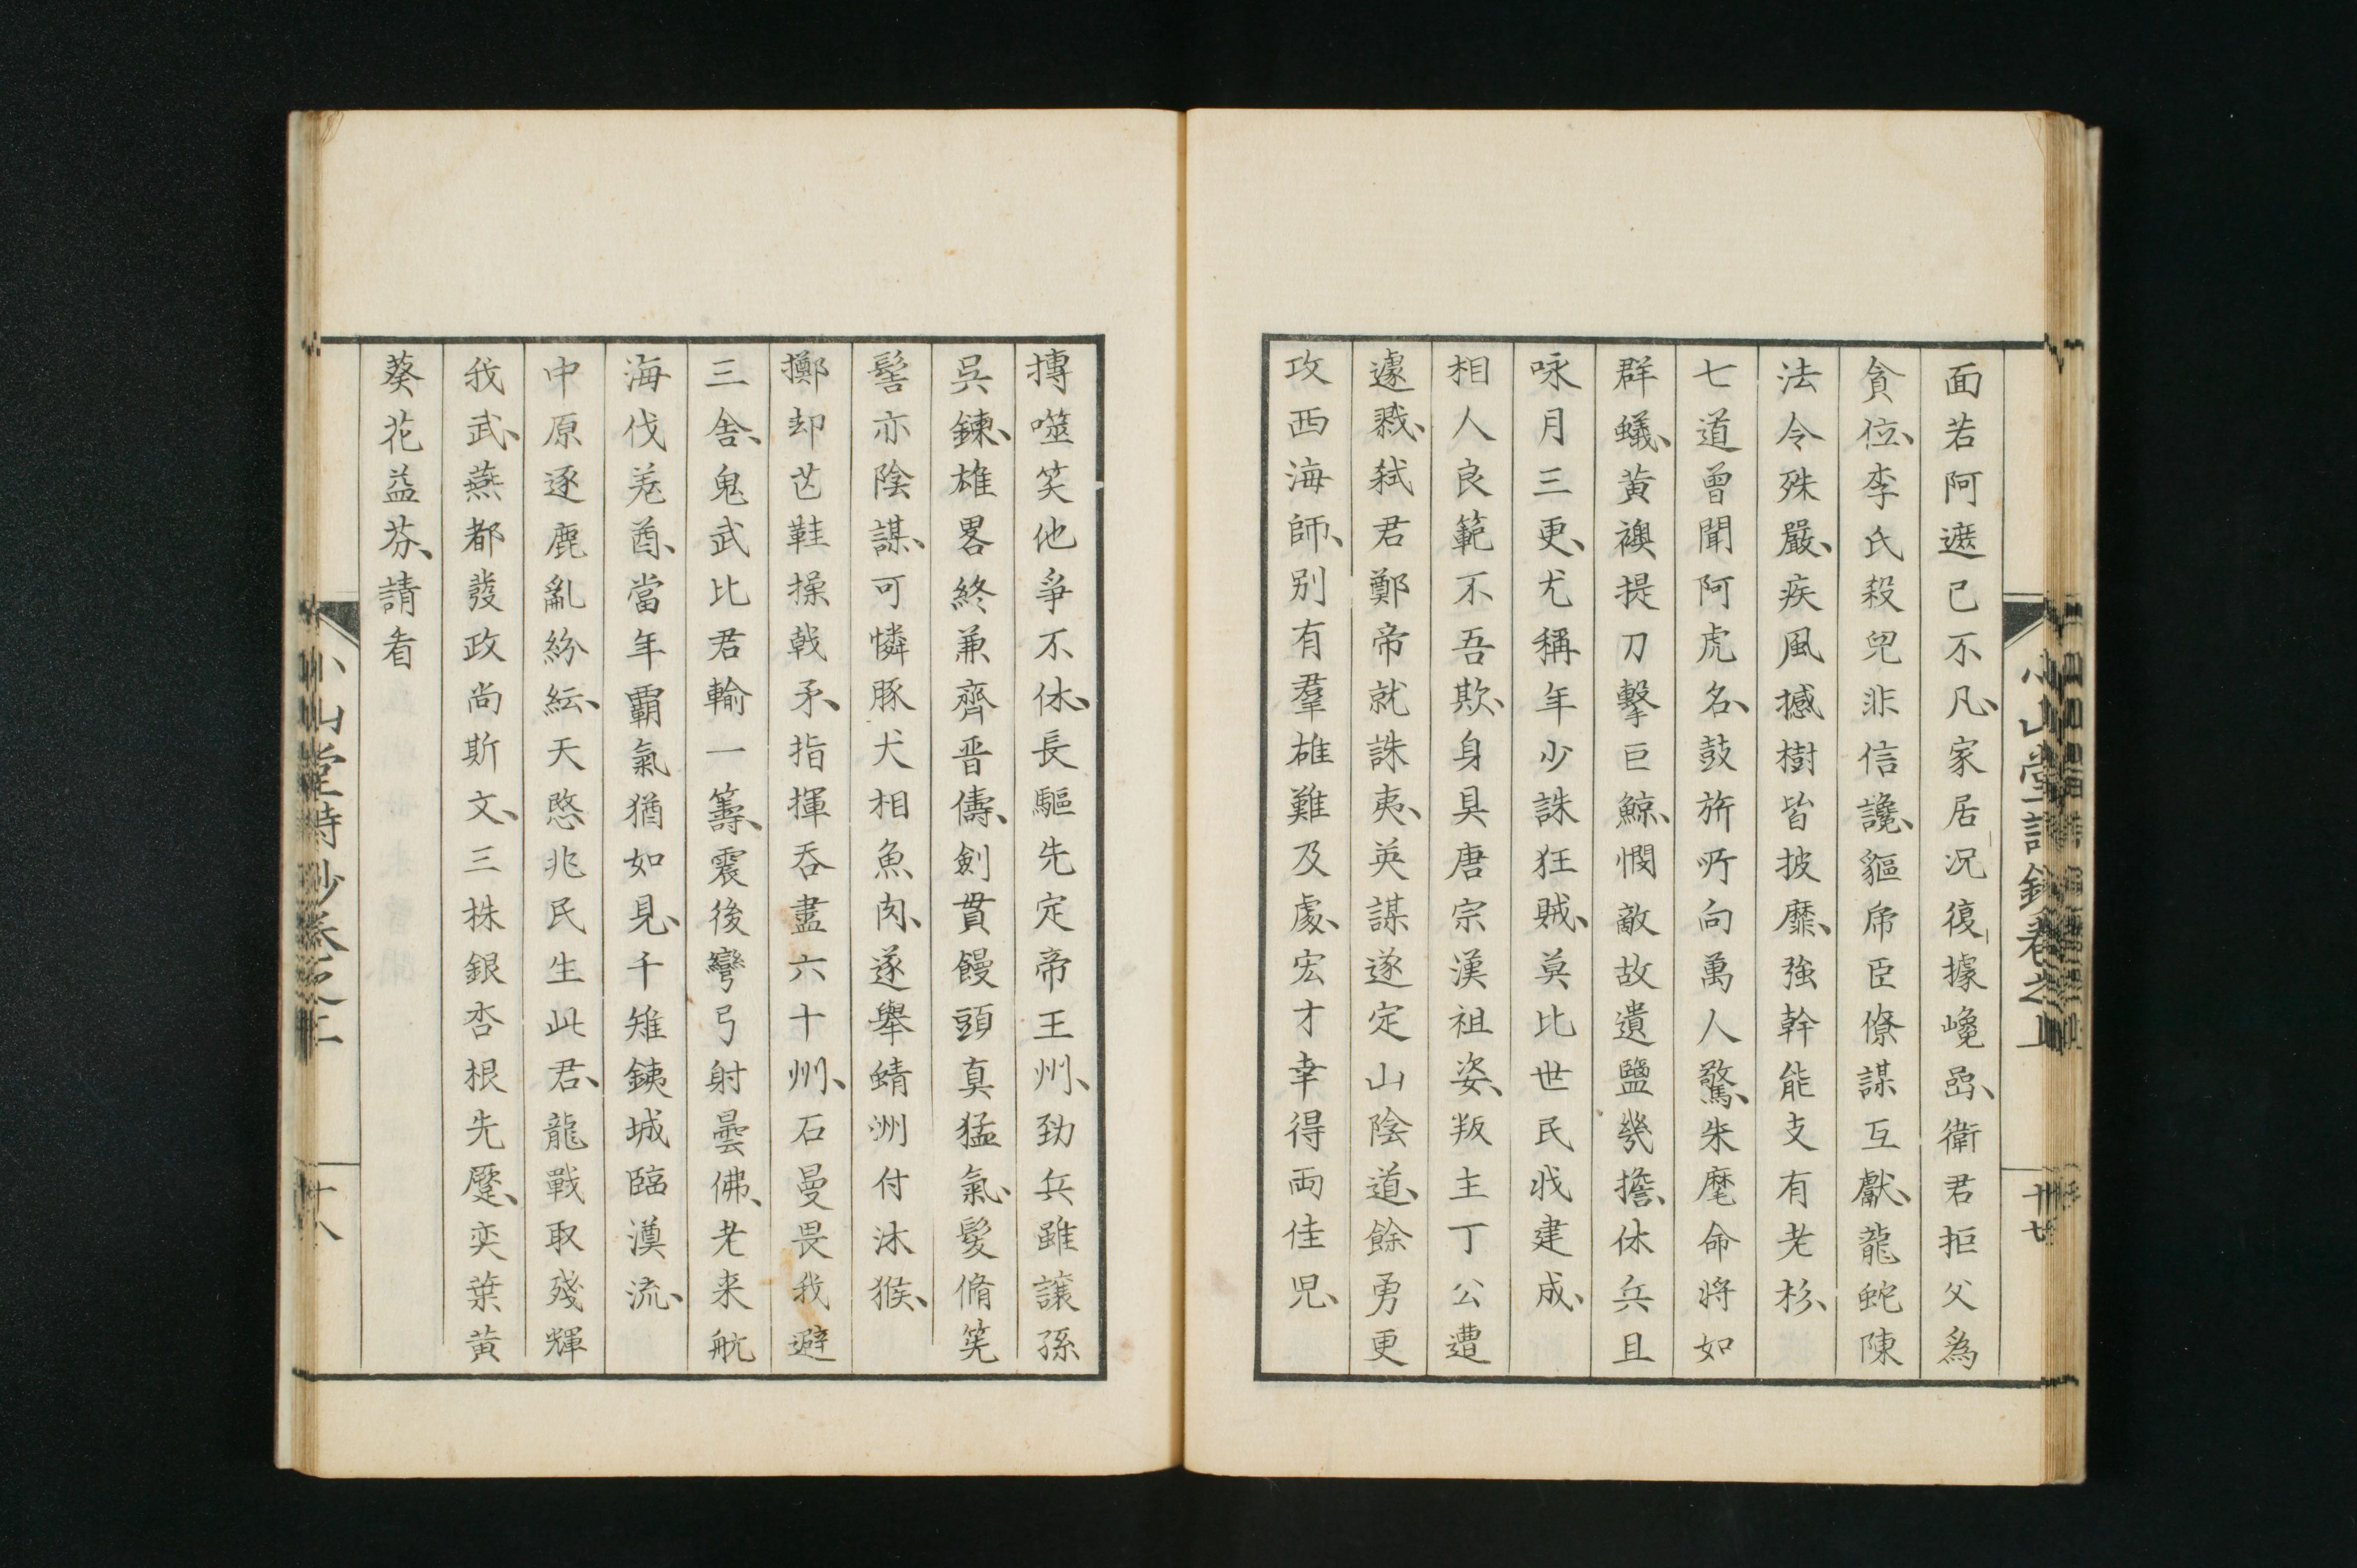 面若阿遮已不凡、家居况復據巉嵒、衛君拒父爲
貪位、李氏殺兒非信讒、貙虎臣僚謀互獻、龍蛇陳
法令殊嚴、疾風撼樹皆披靡、強幹能支有老杉、
七道曾聞阿虎名、鼓旂所向萬人驚、朱麾命将如
群蟻、黄襖提刀擊巨鯨、憫敵故遺鹽幾擔、休兵且
咏月三更、尤稱年少誅狂賊、莫比世民戕建成、
相人良範不吾欺、身具唐宗漢祖姿、叛主丁公遭
遽戮、弑君鄭帝就誅夷、英謀遂定山陰道、餘勇更
攻西海師、别有羣雄難及處、宏才幸得両佳児、
摶噬笑他爭不休、長驅先定帝王州、勁兵雖譲孫
呉鍊、雄畧終兼齊晋儔、劍貫饅頭真猛氣、髮脩筅
髻亦陰謀、可憐豚犬相魚肉、遂舉蜻洲付沐猴、
擲却芒鞋操戟矛、指揮呑盡六十州、石曼畏我避
三舎、鬼武比君輸一籌、震後彎弓射曇佛、老来航
海伐羌酋、當年覇氣猶如見、千雉銕城臨漠流、
中原逐鹿亂紛紜、天愍兆民生此君、龍戰取殘輝
我武、燕都發政尚斯文、三株銀杏根先蹷、奕葉黄
葵花益芬、請看
小山堂詩鈔卷之上
小山堂詩鈔卷之上
十八